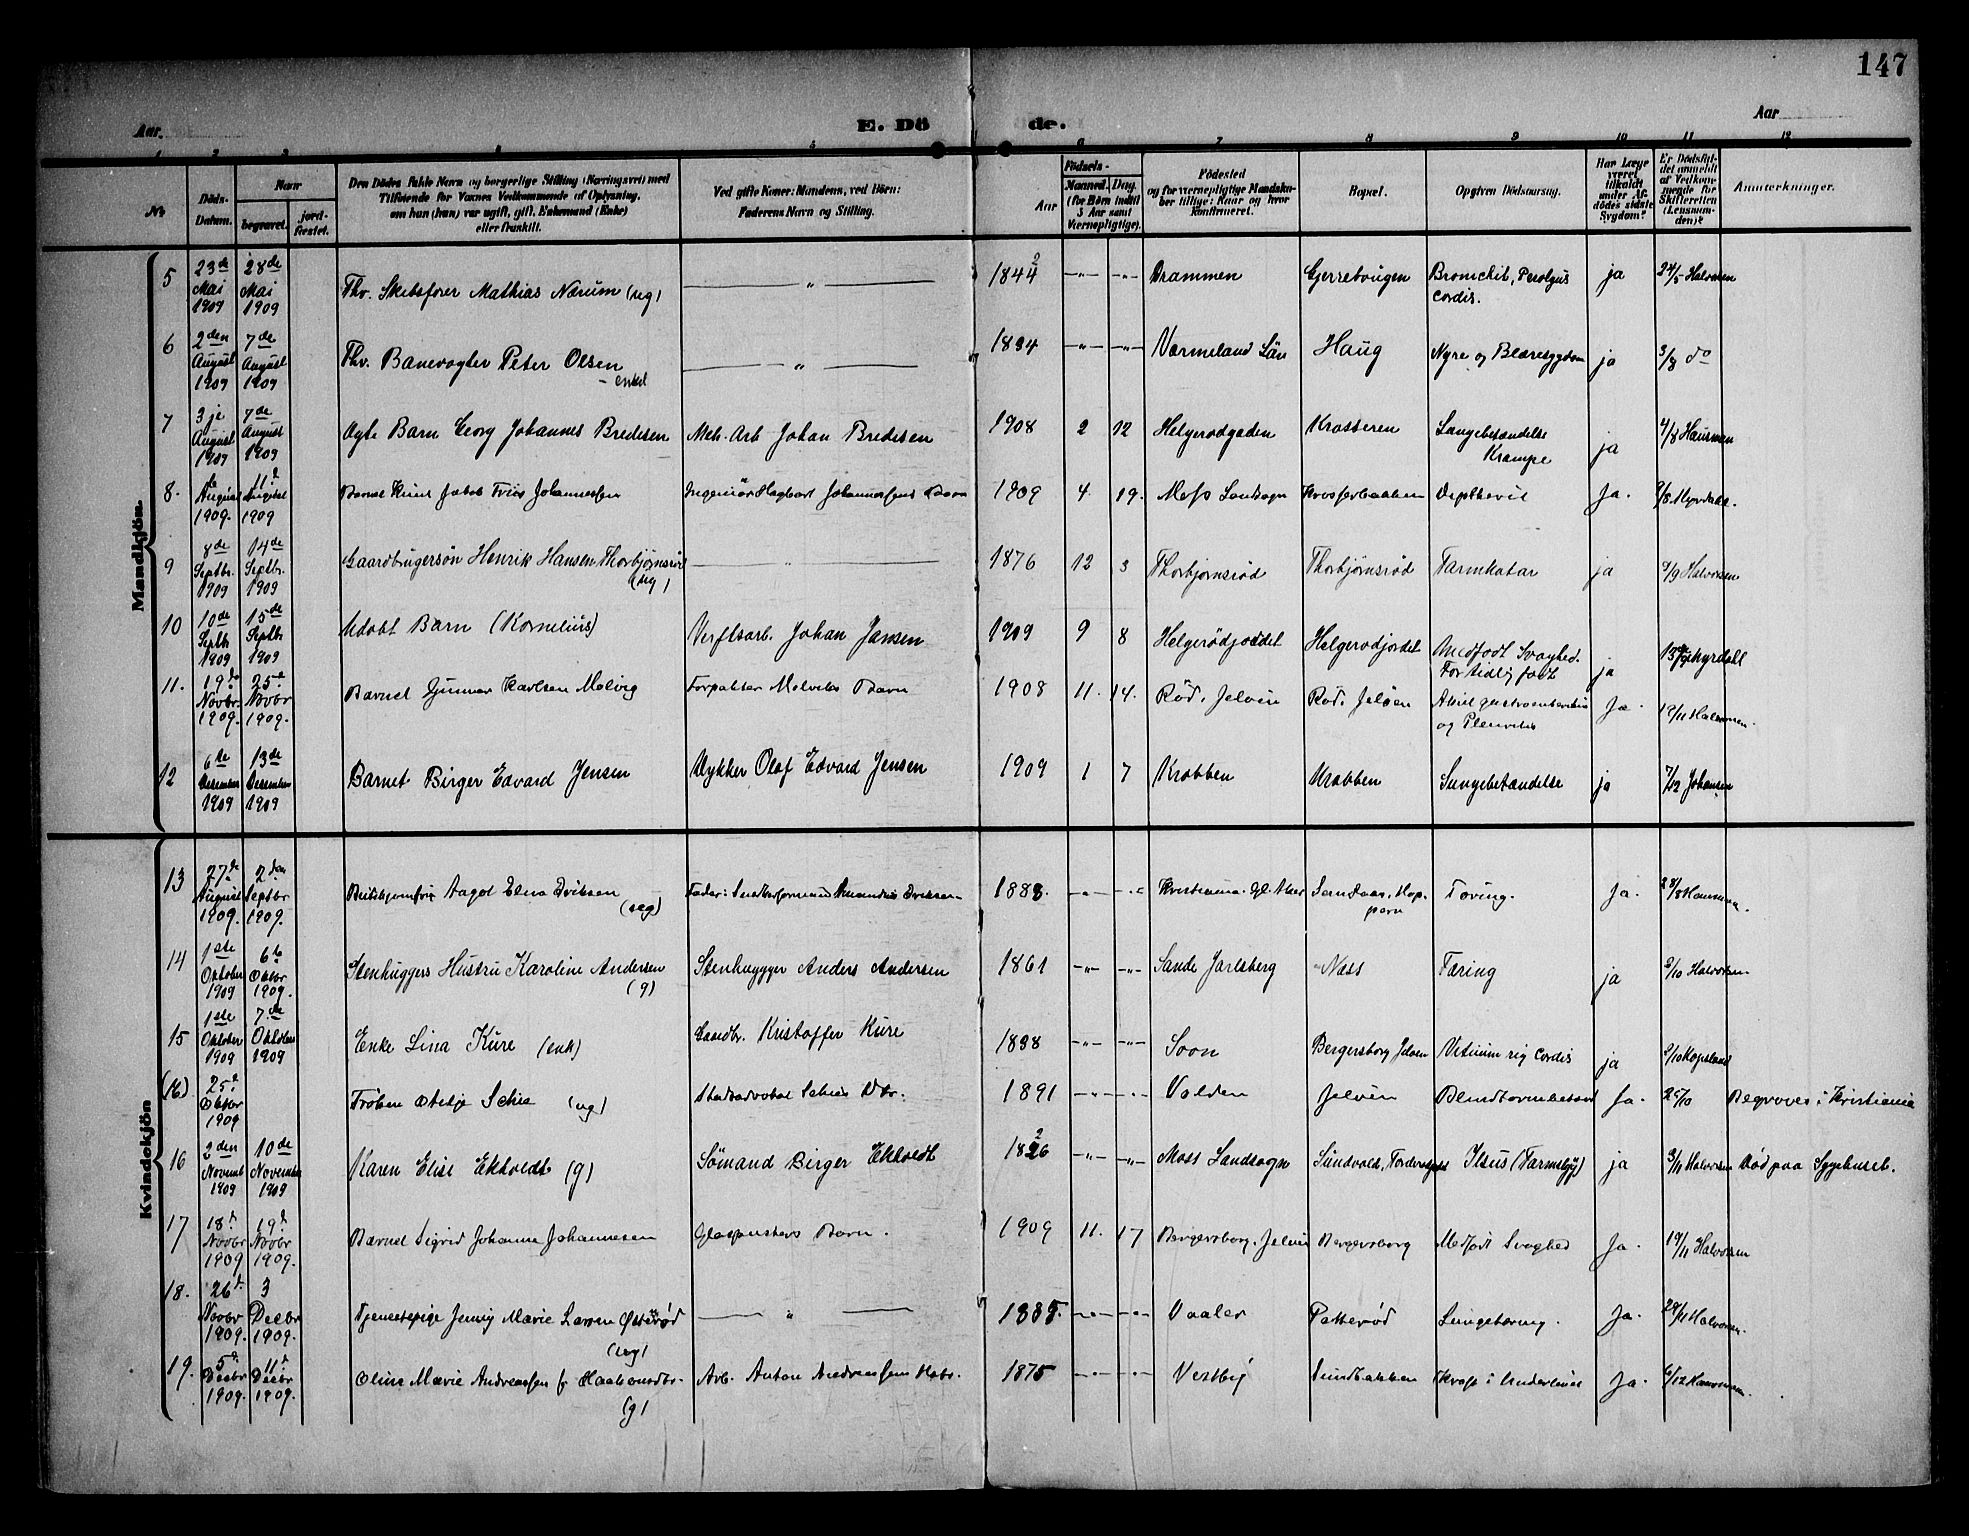 147
Aar.
E. Dö de.
Aar
1 2 3 4 5 6 7 8 9 10 11 12
No.
Döds-Datum.
Naar
begravet.
jord-fæstet.
Den Dödes fulde Navn og borgerlige Stilling (Næringsvei) med
Tilföiende for Voxnes Vedkommende af Oplysning,
om han (hun) var ugift, gift, Enkemand (Enke)
eller fraskilt.
Ved gifte Koner: Mandens, ved Börn:
Faderens Navn og Stilling.
Födsels-
Aar
Maaned. Dag.
(for Börn indtil
3 Aar samt
Værnepligtige).
Födested
og for værnepligtige Mandska-
ber tillige: Naar og hvor
konfirmeret.
Bopæl.
Opgiven Dödsaarsag.
Har Læge
været
tilkaldt
under Af-
dödes sidste
Sygdom?
Er Dödsfal-
det anmeldt
af Vedkom-
mende for
Skifteretten
(Lensman-
den)?
Anmerkninger.
Mandkjön.
5 23de Mai 1909 28de Mai 1909 Fhv. Skibsfører Mathias Narum (ug) — " — 1844 2 —"— —"— Drammen Gjerrebougen Bronchit, cordis. ja 24/5 Halvorsen
6 2den August 1909 7de August 1909 Fhv. Banevogter Peter Olsen - enkel — " — 1834 —"— —"— Värmeland Län Haug Nyre og Blæresygdom ja 3/8 do
7 3je August 1909 7de August 1909 Ægte Barn Georg Johannes Bredesen Mek. Arb. Johan Bredesen 1908 2 12 Helgerødgaden Krosseren Lungebetændelse Krampe ja 4/8 Hansen
8. August 1909. 11te August 1909 Barnet Knut Jakob Friis Johannessen Ingeniør Hagbart Johannessens Barn 1909 4. 19. Moss Landsogn Krosserbakken Ja. 9/8 Myrdahl.
9 8de Septbr. 1909 14de Septbr. 1909 Gaardbrugersøn Henrik Hansen Thorbjørnsrød (ug) — " — 1876 12 3 Thorbjørnsrød Thorbjørnsrød Tarmkatar ja 9/9 Halvorsen
10 10de Septb 1909 15de Septbr 1909 Udøbt Barn (Kornelius) Verftsarb. Johan Jansen 1909 9 8 Helgerødjordet Helgerødjordet Medfødt Svaghed. For tidlig født ja Myrdall
11. 19de Novbr. 1909. 25de Novbr 1909. Barnet Gunnar Karlsen Melvig Forpakter Melvigs Barn 1908 11. 14. Rød, Jeløen Rød, Jeløen og Ja. 19/11 Halvorsen.
12 6te Desember 1909 13de Desember 1909 Barnet Birger Edvard Jensen Dykker Olaf Edvard Jensen 1909 1 7 Krabben Krabben Lungebetændelse ja 7/12 Johansen
Kvindekjön
13 27de August 1909. 2den Septbr 1909. Aagot Elna Eriksen (ug) Fader: Amandus Eriksen 1888. —"— —"— Kristiania. Gl. Aker Tæring. Ja. 28/8
14 1ste Oktober 1909 6te Oktbr 1909. Stenhuggers Hustru Karoline Andersen (g) Stenhugger Anders Andersen 1861 —"— —"— Sande Jarlsberg Næss Tæring ja 2/10 Halvorsen
15 1ste Oktober 1909 7.de Oktober 1909 Enke Lina Kure (enk) Gaardbr. Kristoffer Kure 1838 —"— —"— Soon Bergersborg Jeløen Vitium rig cordis ja 2/10 Kopsland
(16) 25de Oktbr 1909 Frøken Schie (ug) Stadsadvokat Schies Dtr. 1891 —"— —"— Valden Jeløen Ja. 25/10 Begraves i Kristiania
16 2den Novemb 1909 10de November 1909 Karen Elise Ekholdt (g) Sømand Birger Ekholdt 1826 2 —"— —"— Moss Landsogn Sundvold, Ileus (Tarmslyng) ja 3/11 Halvorsen Død paa Sygehuset.
17 18de Novbr 1909 19de Novbr 1909. Barnet Sigrid Johanne Johannesen Glaspusters Barn. 1909 11. 17 Bergersborg. Jeløen Bergersborg Medfødt Svaghed Ja. 19/11 Halvorsen
18. 26de Novbr 1909. 3 Decbr 1909. Tjenestepige Jenny Marie Larsen Østerød (ug) — " — 1885. —"— —"— Vaaler Patterød Lungetæring. Ja. 29/11 Halvorsen.
19. 5te Decbr 1909. 11te Decbr 1909. Oline Marie Andreassen f. (g) Arb. Anton Andreassens Hstr. 1875 —"— —"— Vestby Sundbakken Kræft i Underlivet Ja. 6/12